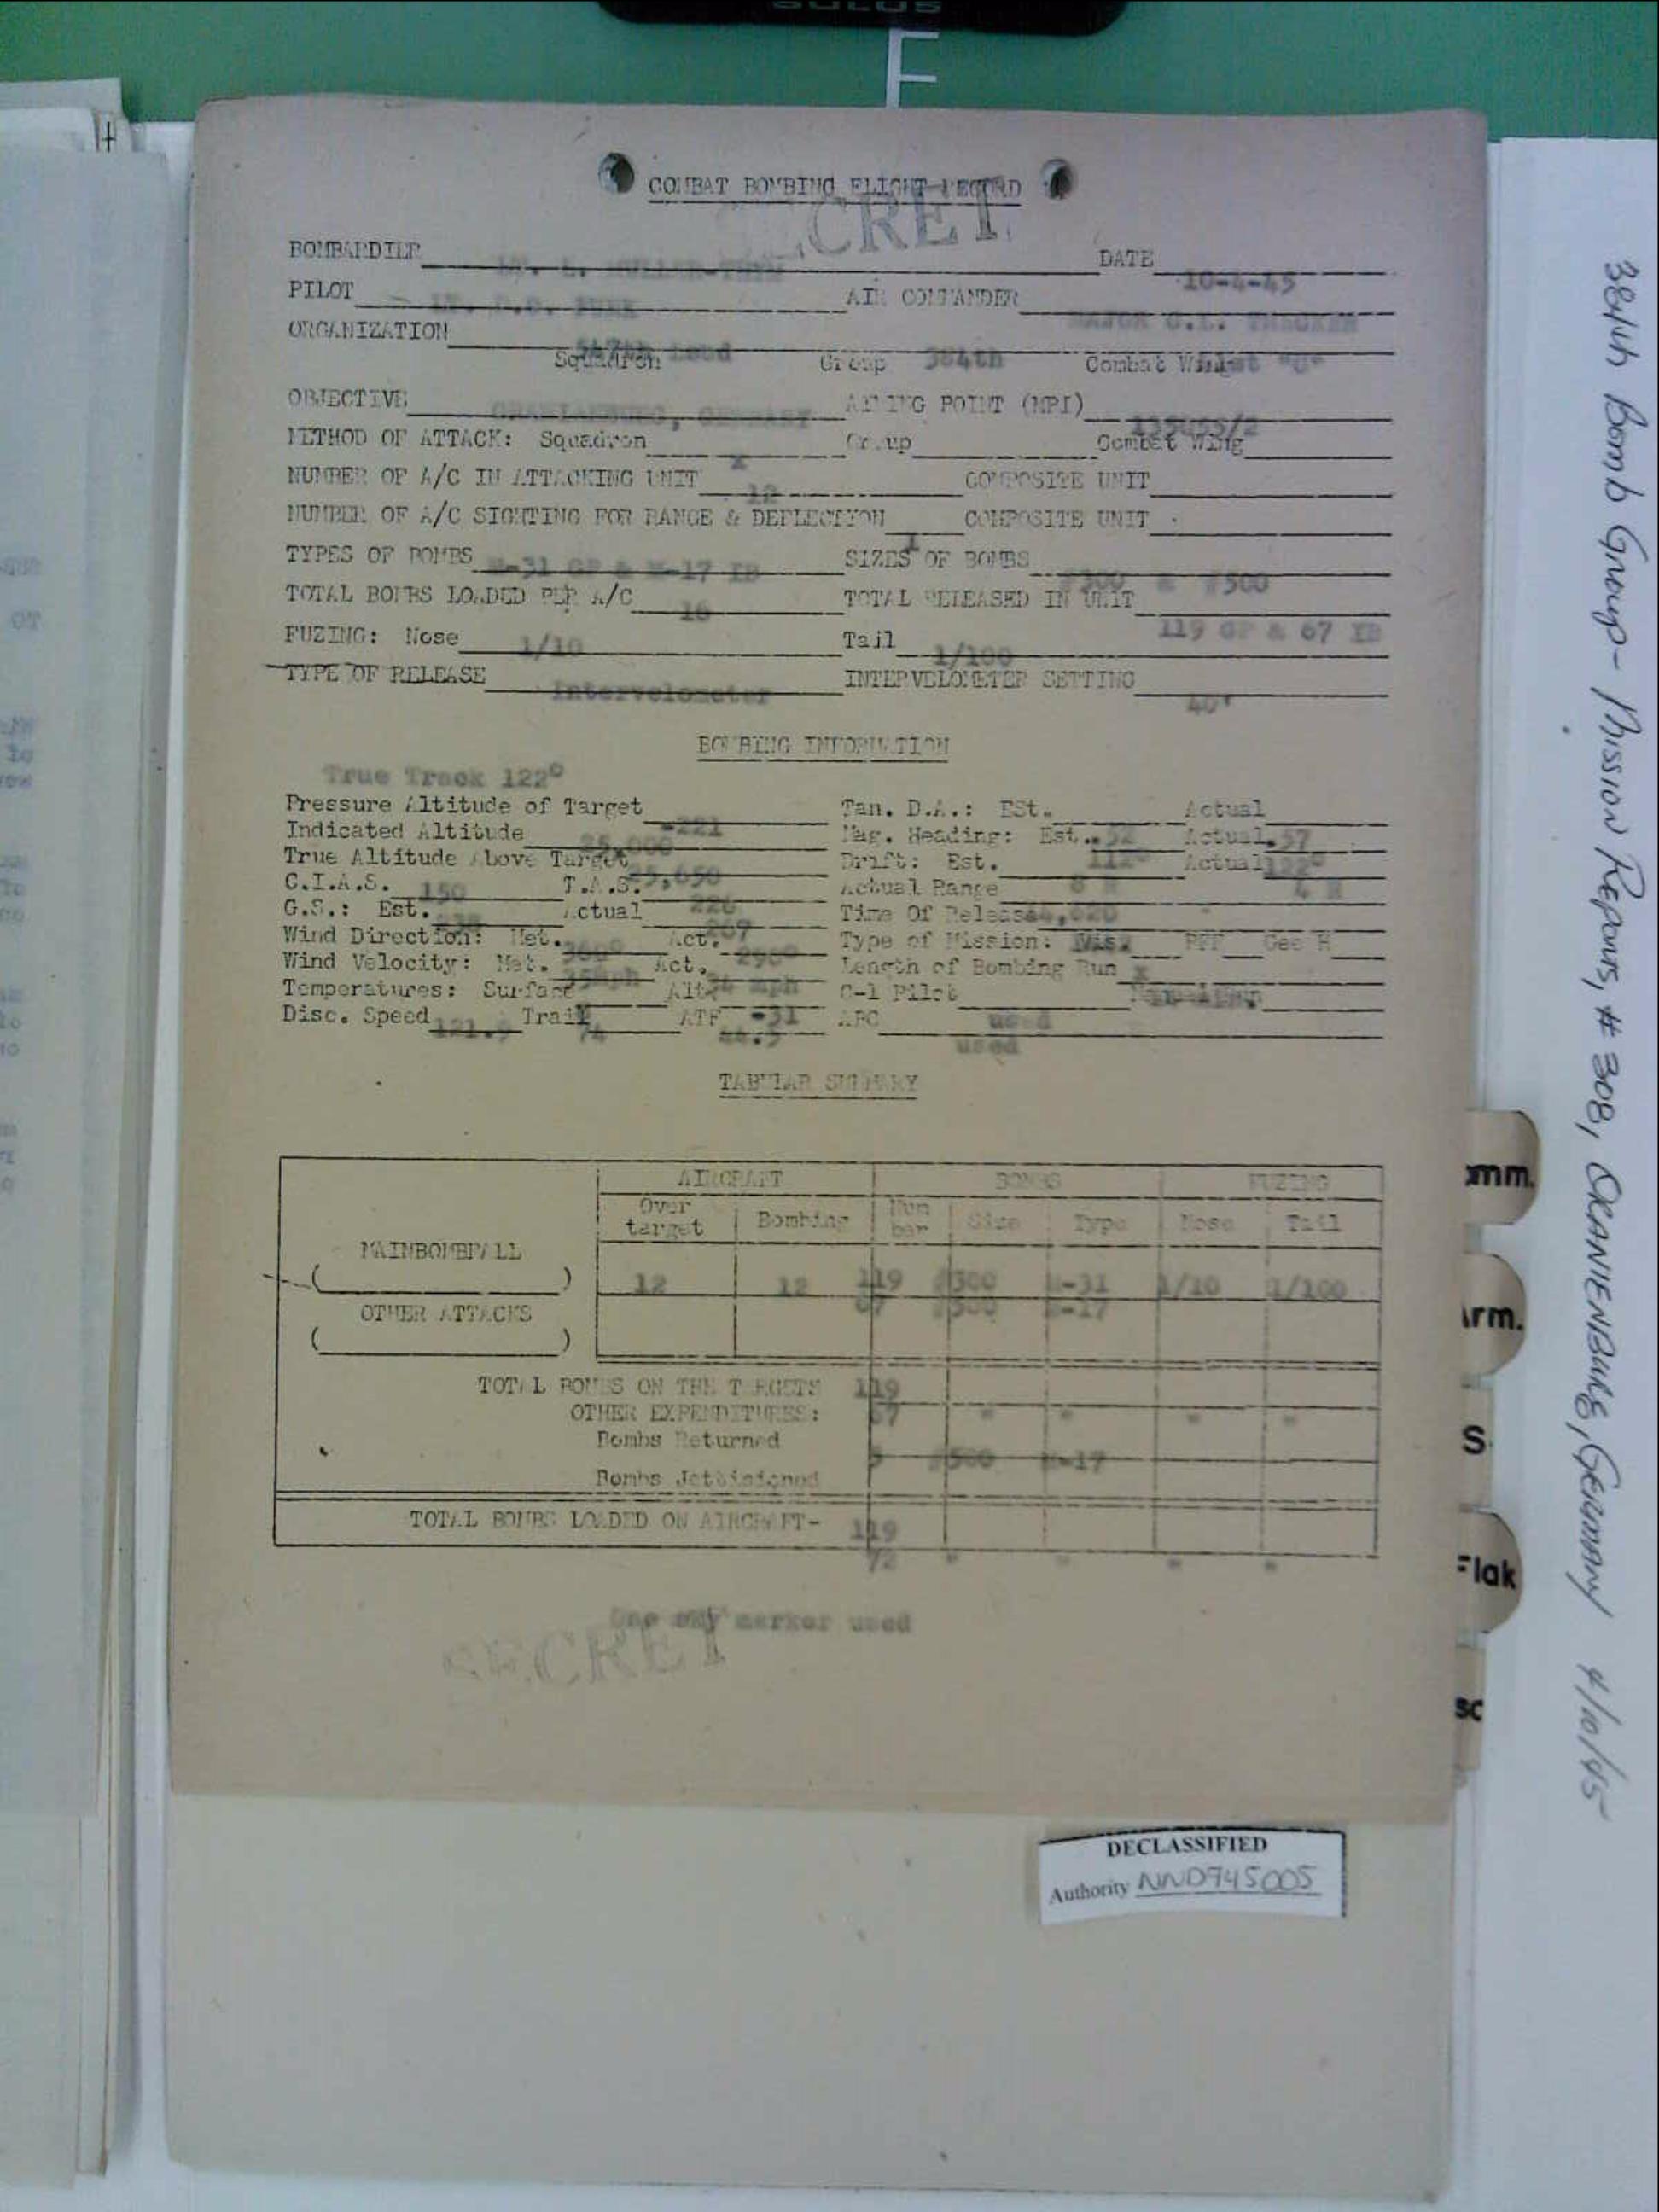 COMBAT BOMBING FLIGHT RECORD
CRET
BOMBARDIER LT. L. MULLER-THYM DATE 10-4-45
PILOT LT. AIR COMMANDER MAJOR C.L. THACKER
ORGANIZATION 547th Lead 384th 1st "C"
Squadron Group Combat Wing
OBJECTIVE ORANIENBURG, GERMANY AIMING POINT (MPI) 135055/2
METHOD OF ATTACK: Squadron x Group Combat Wing
NUMBER OF A/C IN ATTACKING UNIT 12 COMPOSITE UNIT
NUMBER OF A/C SIGHTING FOR RANGE & DEFLECTION 1 COMPOSITE UNIT
TYPES OF BOMBS M-31 GP & M-17 IB SIZES OF BOMBS #300 & #500
TOTAL BOMBS LOADED PER A/C 16 TOTAL RELEASED IN UNIT 119 GP & 67 IB
FUZING: Nose 1/10 Tail 1/100
TYPE OF RELEASE Intervelometer INTERVELOMETER SETTING 40'
BOMBING INFORMATION
True Track 122°
Pressure Altitude of Target -221 Tan. D.A.: Est. .52 Actual .57
Indicated Altitude 25,000 Mag. Heading: Est. 112° Actual 122°
True Altitude Above Target 25,650 Drift: Est. 8 R Actual 4 R
C.I.A.S. 150 T.A.S. 226 Actual Range 14,620
G.S.: Est. 238 Actual 267 Time Of Release
Wind Direction: Met. 360° Act. 290° Type of Mission: Vis. x PFF Gee H
Wind Velocity: Met. 35mph Act. 34 mph Length of Bombing Run
Temperatures: Surface Alt. -31 C-1 Pilot used
Disc. Speed 121.9 Trail 74 ATF 44.5 AFC used
TABULAR SUMMARY
AIRCRAFT BOMBS FUZING
Over target Bombing Number Size Type Nose Tail
MAINBOMBFALL
( ) 12 12 119 #300 M-31 1/10 1/100
67 #500 M-17
OTHER ATTACKS
( )
TOTAL BOMBS ON THE TARGETS 119
67 " " " "
OTHER EXPENDITURES:
Bombs Returned
5 #500 M-17
Bombs Jettisioned
TOTAL BOMBS LOADED ON AIRCRAFT- 119
72 " " " "
One sky marker used
SECRET
DECLASSIFIED
Authority NND745005
384th Bomb Group - Mission Reports, # 308, ORANIENBURG, GERMANY 4/10/45
omm.
Arm.
S
Flak
sc